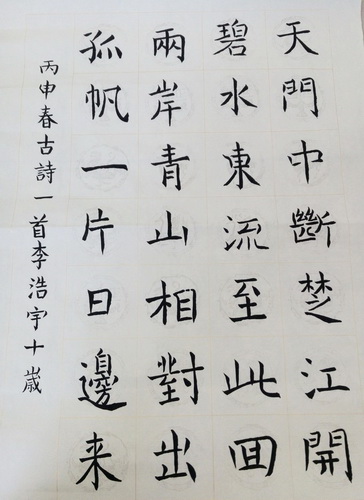 天門中斷楚江開
碧水東流至此回
兩岸青山相對出
孤帆一片日邊来
丙申春古詩一首李浩宇十歲